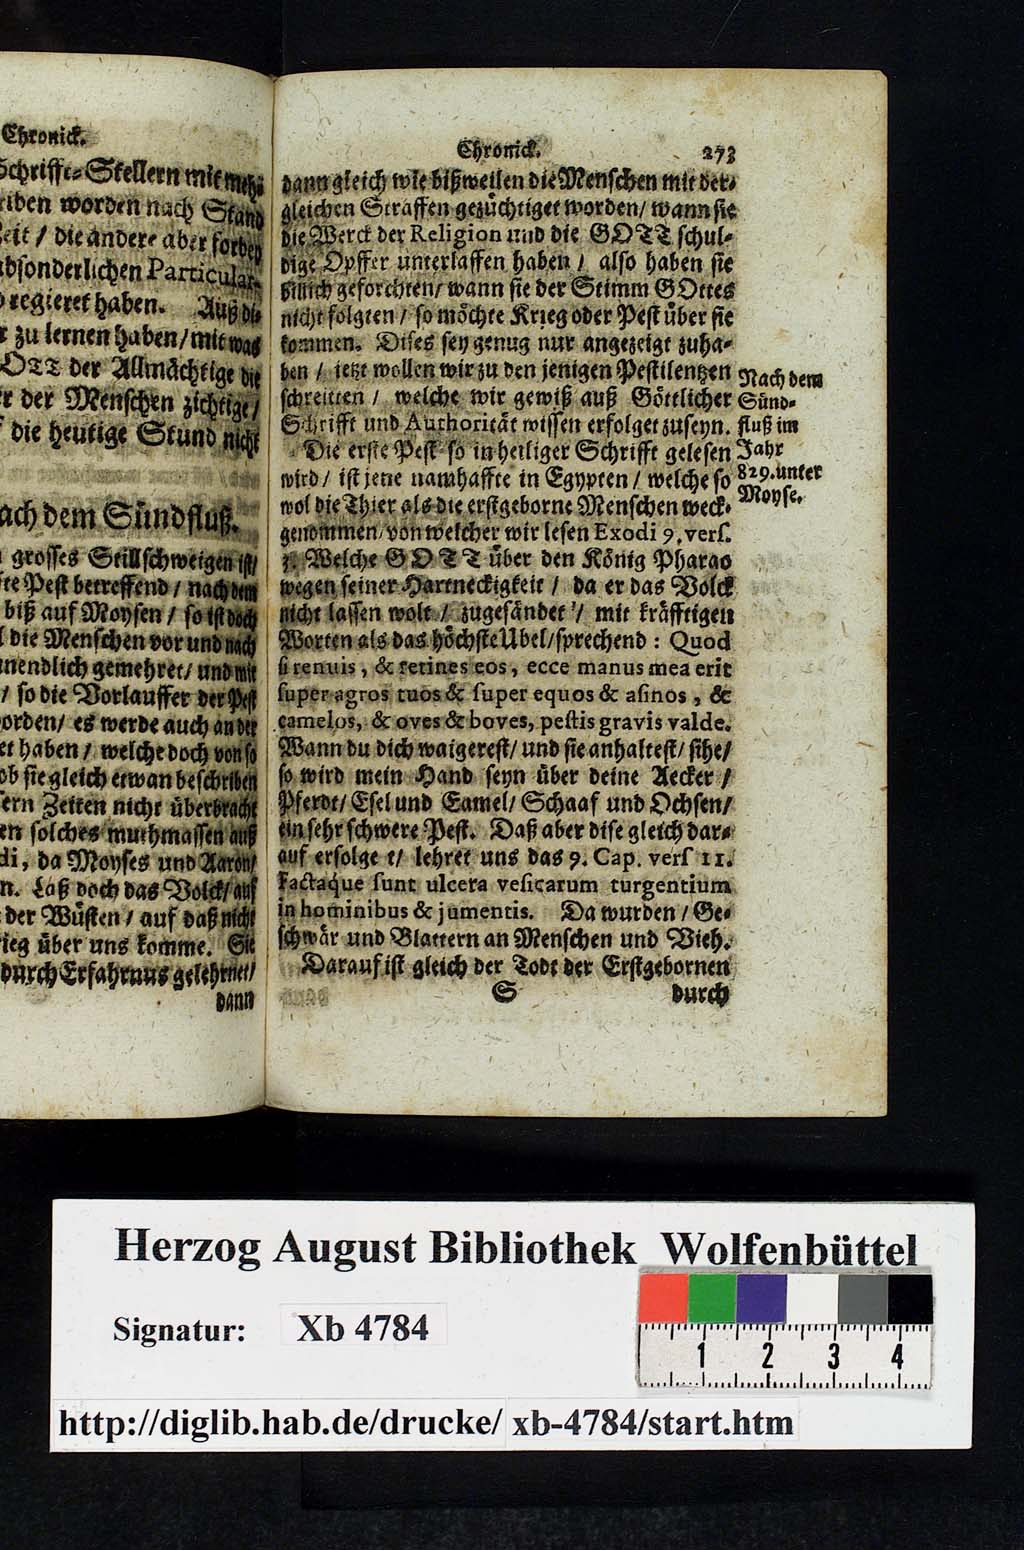 Chronick.
Schrifft-Stellern mit meh-
riben worden nach Stand
Zeit / die andere aber forden
absonderlichen Particular-
regieret haben. Auß di-
zu lernen haben / mit was
OTT der Allmächtige die
der Menschen zichtige /
die heutige Stund nicht
nach dem Sündfluß.
grosses Stillschweigen ist /
Pest betreffend / nach dem
biß auf Moysen / so ist doch
die Menschen vor und nach
unendlich gemehret / und mit
/ so die Vorlauffer der Pest
worden / es werde auch an der
haben / welche doch von so
ob sie gleich etwan beschriben
Zeiten nicht überbracht
solches muthmassen auß
di, da Moyses und Aaron /
Laß doch das Volck / auf
der Wüsten / auf daß nicht
Krieg über uns komme. Sie
durch Erfahrnus gelehrnet /
dann
Chronick. 273
dann gleich wie bißweilen die Menschen mit der-
gleichen Straffen gezüchtiget worden / wann sie
die Werck der Religion und die GOTT schul-
dige Opffer unterlassen haben / also haben sie
billich geforchten / wann sie der Stimm GOttes
nicht folgten / so möchte Krieg oder Pest über sie
kommen. Dises sey genug nur angezeigt zuha-
ben / jetzt wollen wir zu den jenigen Pestilentzen
schreitten / welche wir gewiß auß Göttlicher
Schrifft und Authorität wissen erfolget zuseyn.
Die erste Pest so in heiliger Schrifft gelesen
wird / ist jene namhaffte in Egypten / welche so
wol die Thier als die erstgeborne Menschen weck-
genommen / von welcher wir lesen Exodi 9. vers.
3. Welche GOTT über den König Pharao
wegen seiner Hartneckigkeit / da er das Volck
nicht lassen wolt / zugesändet / mit kräfftigen
Worten als das höchste Ubel / sprechend : Quod
si renuis, & retines eos, ecce manus mea erit
super agros tuos & super equos & asinos, &
camelos, & oves & boves, pestis gravis valde.
Wann du dich waigerest / und sie anhaltest / sihe /
so wird mein Hand seyn über deine Aecker /
Pferdt / Esel und Camel / Schaaf und Ochsen /
ein sehr schwere Pest. Daß aber dise gleich dar-
auf erfolge t / lehret uns das 9. Cap. vers 11.
Factaque sunt ulcera vesicarum turgentium
in hominibus & jumentis. Da wurden / Ge-
schwär und Blattern an Menschen und Vieh.
Darauf ist gleich der Todt der Erstgebornen
S durch
Nach dem
Sünd-
fluß im
Jahr
829. unter
Moyse.
Herzog August Bibliothek Wolfenbüttel
Signatur: Xb 4784
1 2 3 4
http://diglib.hab.de/drucke/ xb-4784/start.htm